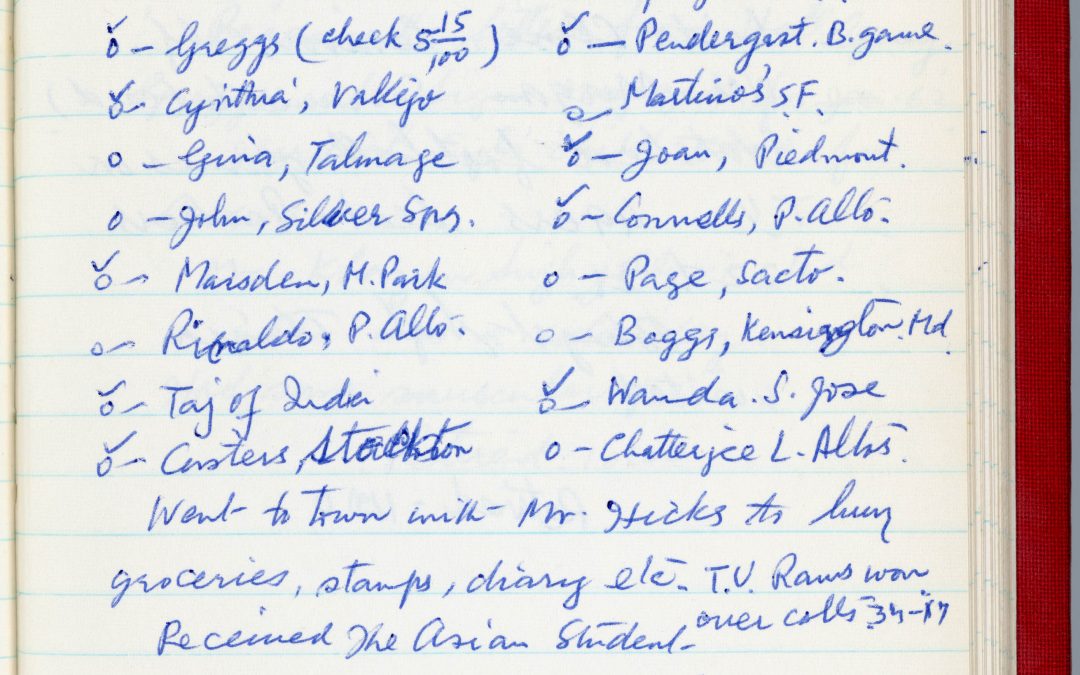 ŏ – Greggs (check 5 15/100)   ŏ – Pendergast. B.game.
ŏ – Cynthia, Vallejo   Martino's S.F.
o – Gina, Talmage   ŏ – Joan, Piedmont.
o – John, Silver Spr.   ŏ – Connells, P. Alto.
ŏ – Marsden, M. Park   o – Page, Sacto.
o – Rinaldo, P. Alto.   o – Boggs, Kensington. Md
ŏ – Taj of India   ŏ – Wanda. S. Jose
ŏ – Casters, Stockton   o – Chatterjee L. Altos.
Went to town with Mr. Hicks to buy
groceries, stamps, diary etc. T.V. Rams won
over colts 34-17
Received The Asian Student